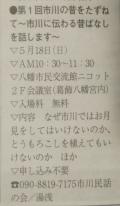 ●第1回市川の昔をたずね
て～市川に伝わる昔ばなし
を話します～
▽5月18日（日）
▽AM10：30～11：30
▽八幡市民交流館ニコット
2F会議室（葛飾八幡宮内）
▽入場料　無料
▽内容　なぜ市川ではお月
見をしてはいけないのか、
とうもろこしを植えてもい
けないのか　ほか
▽申し込み不要
☎090-8819-7175市川民話
の会／湯浅